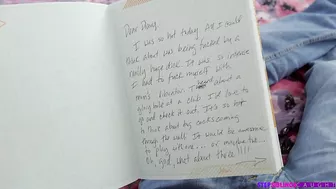 Dear Diary,
I was so hot today. All I could
think about was being fucked by a
really huge dick. It was so intense
I had to fuck myself with
mom's vibrator. I heard about a
glory hole at a club. I'd love to
go and check it out. It's so hot
to think about big cocks coming
through the wall. It would be awesome
to play with one... or maybe two...
Oh, god, what about three!!!!